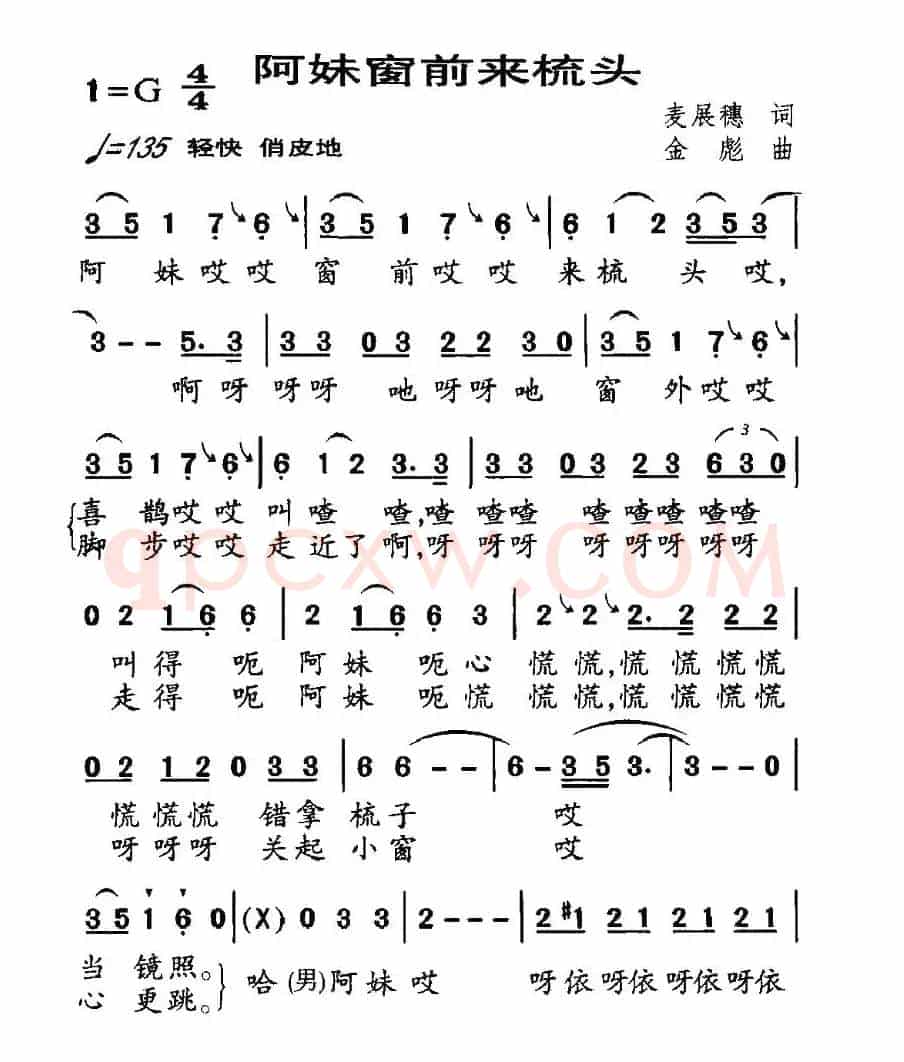 阿妹窗前来梳头
1=G 4/4
麦展穗 词
♩=135 轻快 俏皮地
金 彪 曲
3 5 1 7 6 | 3 5 1 7 6 | 6 1 2 3 5 3 |
阿 妹哎哎 窗 前哎哎 来梳 头 哎,
3 - - 5. 3 | 3 3 0 3 2 2 3 0 | 3 5 1 7 6 |
啊呀 呀呀 吔呀呀吔 窗 外哎哎
3 5 1 7 6 | 6 1 2 3. 3 | 3 3 0 3 2 3 6 3 0 |
3
喜 鹊哎哎 叫喳 喳,喳 喳喳 喳 喳喳 喳喳
脚 步哎哎 走近了啊,呀 呀呀 呀 呀呀呀呀
qpcxw.COM
0 2 1 6 6 | 2 1 6 6 3 | 2 2 2. 2 2 2 |
叫得 呃 阿妹 呃心 慌慌,慌 慌 慌慌
走得 呃 阿妹 呃慌 慌慌,慌 慌 慌慌
0 2 1 2 0 3 3 | 6 6 - - | 6 - 3 5 3. | 3 - - 0 |
慌慌慌 错拿 梳子 哎
呀呀呀 关起 小窗 哎
3 5 1 6 0 | (X) 0 3 3 | 2 - - - | 2 #1 2 1 2 1 2 1 |
当 镜照。 哈 (男)阿妹 哎 呀依呀依呀依呀依
心 更跳。